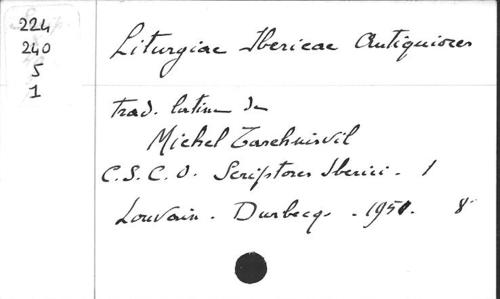 224
240
5
1
Liturgiae Ibericae Antiquiores
trad. latine de
Michel Tarchnisvil
C.S.C.O. Scriptores Iberici. 1
Louvain. Durbecq. 1950. 8°